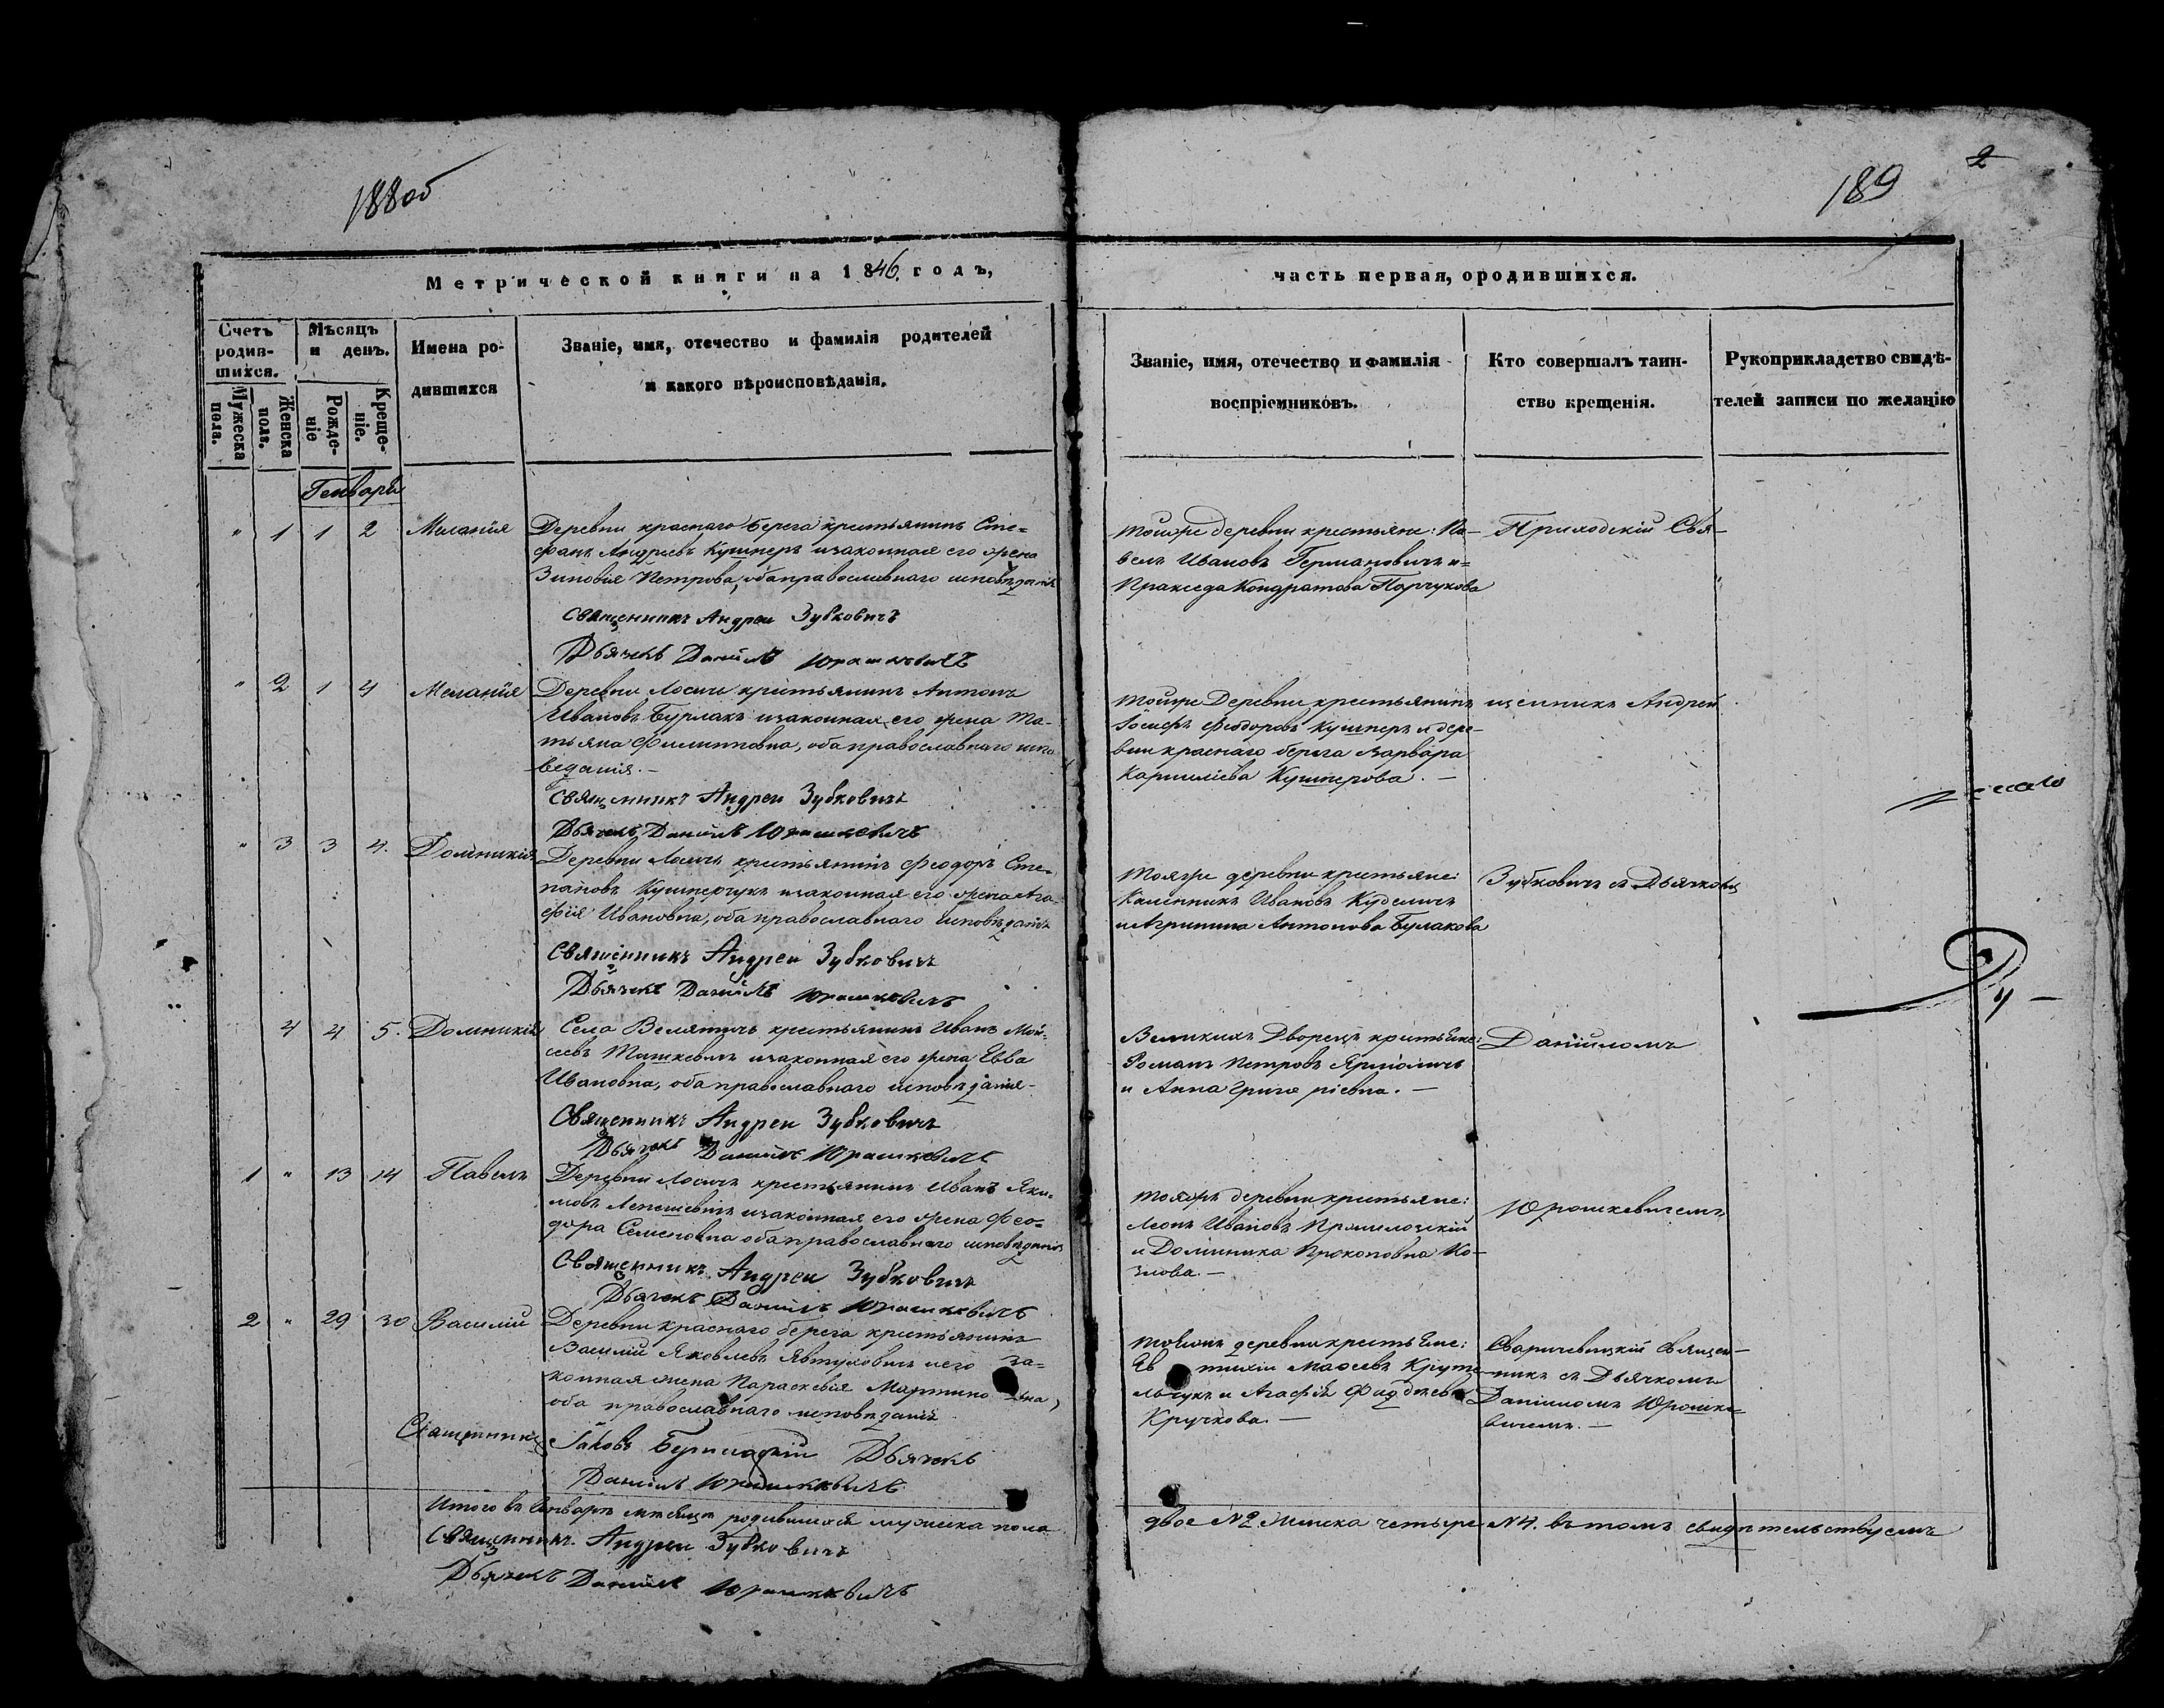 188об
189
2
Метрической книги на 1846 годъ,
часть первая, ородившихся.
Счетъ родив-
шихся.
Мужеска пола.
Женска пола.
Мѣсяцъ и день.
Рожде-
ніе
Креще-
ніе.
Имена ро-
дившихся
Званіе, имя, отечество и фамилія родителей
и какого вѣроисповѣданія.
Званіе, имя, отечество и фамилія
воспріемниковъ.
Кто совершалъ таин-
ство крещенія.
Рукоприкладство свидѣ-
телей записи по желанію
Генварь
" 1 1 2 Меланія
Деревни краснаго берега крестьянинъ Сте=
фанъ Андреевъ Кушнеръ изаконная его жена
Зиновія Петрова, оба православнаго исповѣданія
Священникъ Андрей Зубковичъ
Дьячекъ Даніилъ Юрашкевичъ
тойже деревни крестьяне: Па-
велъ Ивановъ Германовичъ и=
Пракседа Кондратова
Приходскій Свя-
" 2 1 4 Меланія
Деревни Лосичъ крестьянинъ Антонъ
Ивановъ Бурлакъ изаконная его жена Та-
тьяна Филипповна, оба православнаго испо
веданія.-
Священникъ Андрей Зубковичъ
Дьячекъ Даніилъ Юрашкевичъ
тойже Деревни крестьянинъ
Іосифъ Феодоровъ Кушнеръ и дере-
вни краснаго берега Варвара
Кушнерова. -
щенникъ Андрей
" 3 3 4. Домникія
Деревни Лосичъ крестьянинъ Феодоръ Сте-
пановъ Кушнерчукъ изаконная его жена Ага-
фія Ивановна, оба православнаго исповѣданія
Священникъ Андрей Зубковичъ
Дьячекъ Даніилъ Юрашкевичъ
тояже деревни крестьяне:
Каленникъ Ивановъ Куделичъ
и Агрипина Антонова Булакова
Зубковичъ съ Дьячкомъ
4 4 5. Домникія
Села Велятичъ крестьянинъ Иванъ Мои-
сеевъ Ташкевичъ изаконная его жена Евва
Ивановна, оба православнаго исповѣданія-
Священникъ Андрей Зубковичъ
Дьячекъ Даніилъ Юрашкевичъ
Великихъ Дворецъ крестьяне:
Романъ Петровъ Ярмоличъ
и Анна Григоріевна. -
Даніиломъ
1 " 13 14 Павелъ
Деревни Лосичъ крестьянинъ Иванъ Яки-
мовъ Лепешевичъ изаконная его жена Фео-
дора Семеновна оба православнаго исповѣданія
Священникъ Андрей Зубковичъ
Дьячекъ Даніилъ Юрашкевичъ
тояжъ деревни крестьяне:
Леонъ Ивановъ
и Доминика Прокоповна Ко-
злова. -
Юрошкевичемъ
2 " 29 30 Василій
Деревни краснаго берега крестьянинъ
Василій Яковлевъ Явтуховичъ иего за-
конная жена Параскевія Мартиновна,
оба православнаго исповѣданія
Священникъ Іаковъ Дьячекъ
Даніилъ Юрашкевичъ
деревни крестьяне:
Евтихій
и Агафія
Кручкова. -
Сваричевицкій Священ-
никъ съ Дьячкомъ
Даніиломъ Юрошке-
вичемъ. -
Итого въ Генварѣ мѣсяцѣ родившихся мужеска пола
двое №2. Женска четыре №4. въ томъ свидѣтельствуемъ
Священникъ Андрей Зубковичъ
Дьячекъ Даніилъ Юрашкевичъ